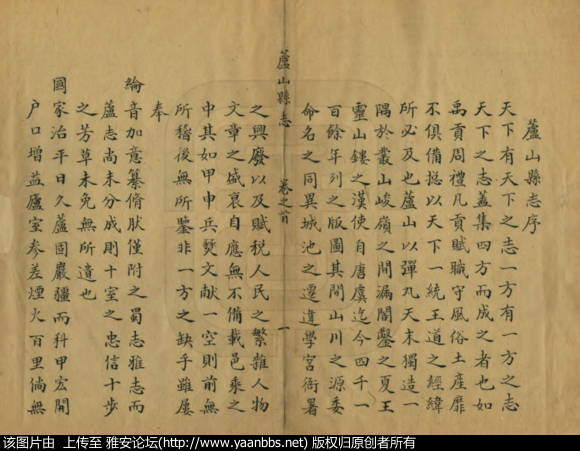 蘆山縣志序
天下有天下之志一方有一方之志
天下之志蓋集四方而成之者也如
禹貢周禮凡貢賦職守風俗土產靡
不俱備揔以天下一統王道之經緯
所必及也蘆山以彈丸天末獨遠一
隅於叢山峻嶺之間漏閣鑿之夏王
靈山鏤之漢使自唐虞迄今四千一
百餘年列之版圖其間山川之源委
命名之同異城池之遷違學宮衙署
蘆山縣志 卷之首 一
之興廢以及賦稅人民之繁雜人物
文章之盛衰自應無不備載邑乘之
中其如甲申兵燹文献一空則前無
所稽後無所鑒非一方之缺乎雖屡
奉
綸音加意纂脩朕僅附之蜀志雅志而
蘆志尚未分成則十室之忠信十步
之芳草未免無所遺也
國家治平日久蘆固嚴疆而科甲宏開
户口增益廬室參差煙火百里倘無
该图片由 上传至 雅安论坛(http://www.yaanbbs.net) 版权归原创者所有